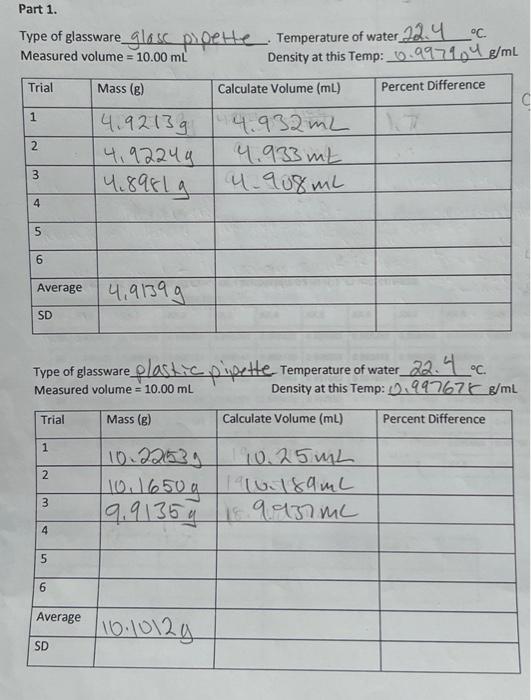 Part 1.
Type of glassware glass pipette. Temperature of water 22.4 °C.
Measured volume = 10.00 mL Density at this Temp: 0.997904 g/mL
Trial Mass (g) Calculate Volume (mL) Percent Difference
1 4.9213g 4.932mL 1.7
2 4.9224g 4.933mL
3 4.8981g 4.908mL
4
5
6
Average 4.9139g
SD
Type of glassware plastic pipette Temperature of water 22.4 °C.
Measured volume = 10.00 mL Density at this Temp: 0.997678 g/mL
Trial Mass (g) Calculate Volume (mL) Percent Difference
1 10.2253g 10.25mL
2 10.1650g 10.189mL
3 9.9135g 9.937mL
4
5
6
Average 10.1012g
SD